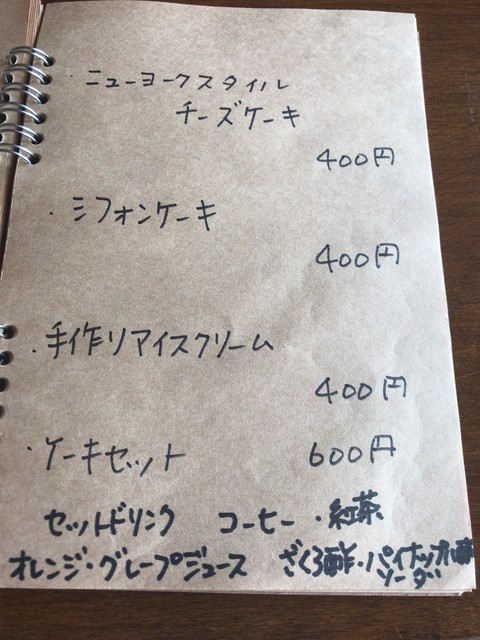 ・ニューヨークスタイル
チーズケーキ
400円
・シフォンケーキ
400円
・手作りアイスクリーム
400円
・ケーキセット 600円
セットドリンク コーヒー・紅茶
オレンジ・グレープジュース ざくろ酢・パイナップル酢
ソーダ